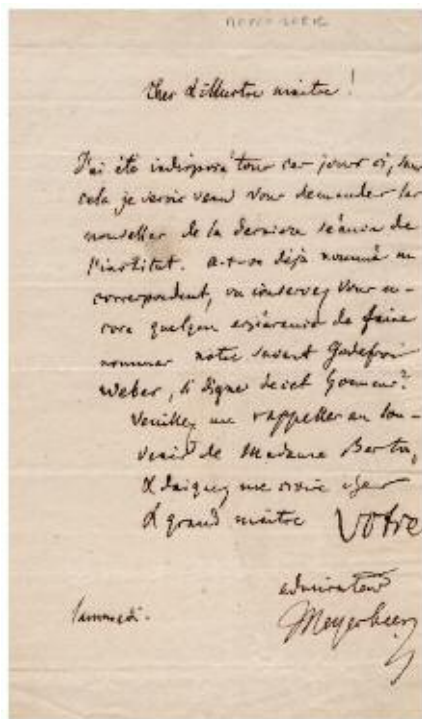 MEYERBEER
Cher & illustre maître!
J'ai été indisposé tous ces jours ci, sans
cela je serois venu vous demander les
nouvelles de la derniere séance de
l'institut. a-t-on déjà nommé un
correspondent, ou conservez vous en-
core quelque espérance de faire
nommer notre savant Godefroi
Weber, si digne de cet honneur?
Veuillez me rappeller au sou-
venir de Madame Berton,
& daignez me croire cher
& grand maître Votre
admirateur
Meyerbeer
Samedi.